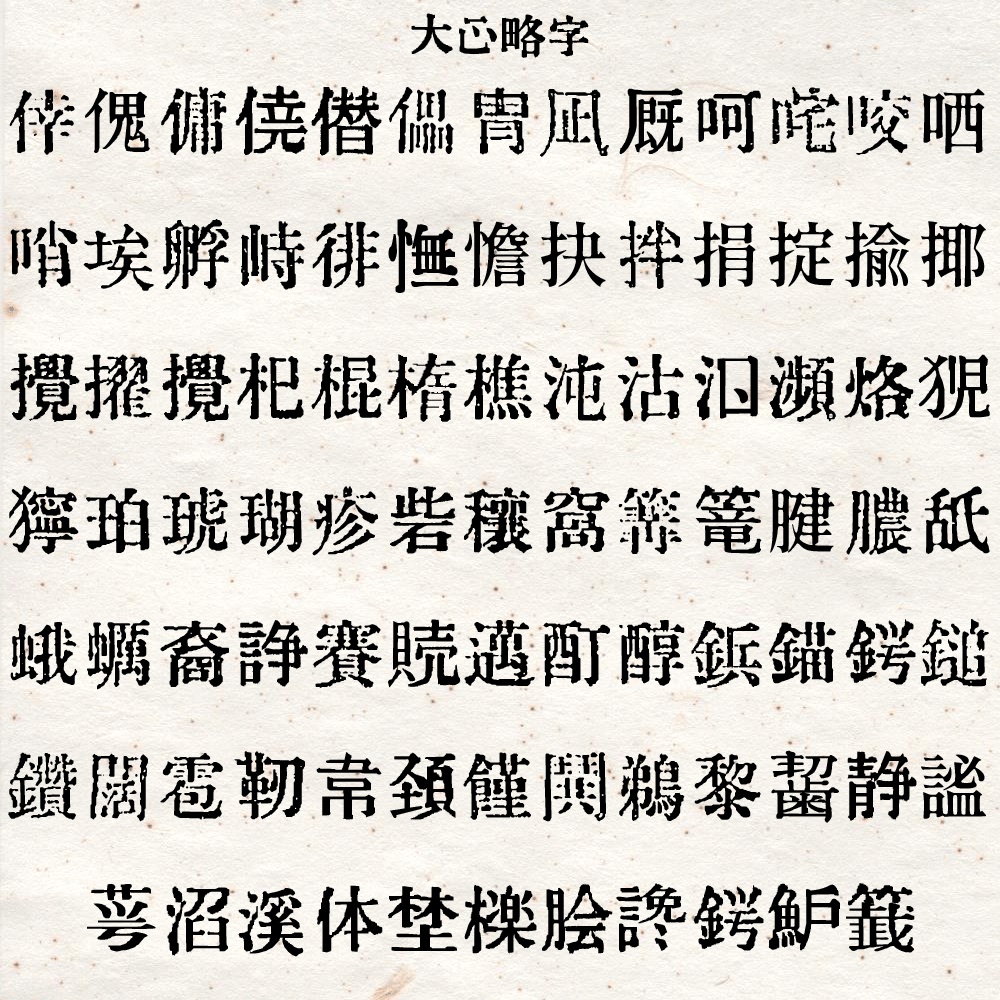 大正略字
倖傀傭僥僭儡冑凪厩呵咤咬哂
哨埃孵峙徘憮憺抉拌捐掟揄揶
攪擢攪杞棍楕樵沌沽汨瀕烙猊
獰珀琥瑚疹砦穰窩篳篭腱膿舐
蛾蠣裔諍賽贖邁酊醇鋲錨鍔鎚
鑽闊雹靭韋頚饉鬨鵜黎齧静謐
萼滔溪体埜檪膾讒鍔鱸籤